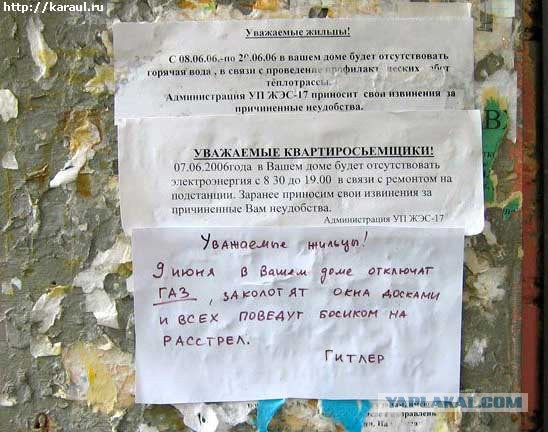 http://karaul.ru
Уважаемые жильцы!
С 08.06.06.-по 20.06.06 в вашем доме будет отсутствовать
горячая вода , в связи с проведение профилактических работ
теплотрассы.
Администрация УП ЖЭС-17 приносит свои извинения за
причиненные неудобства.
УВАЖАЕМЫЕ КВАРТИРОСЪЕМЩИКИ!
07.06.2006года в Вашем доме будет отсутствовать
электроэнергия с 8 30 до 19.00 в связи с ремонтом на
подстанции. Заранее приносим свои извинения за
причиненные Вам неудобства.
Администрация УП ЖЭС-17
Уважаемые жильцы!
9 июня в Вашем доме отключат
ГАЗ , заколотят окна досками
и всех поведут босиком на
расстрел.
Гитлер
YAPLAKAL.COM